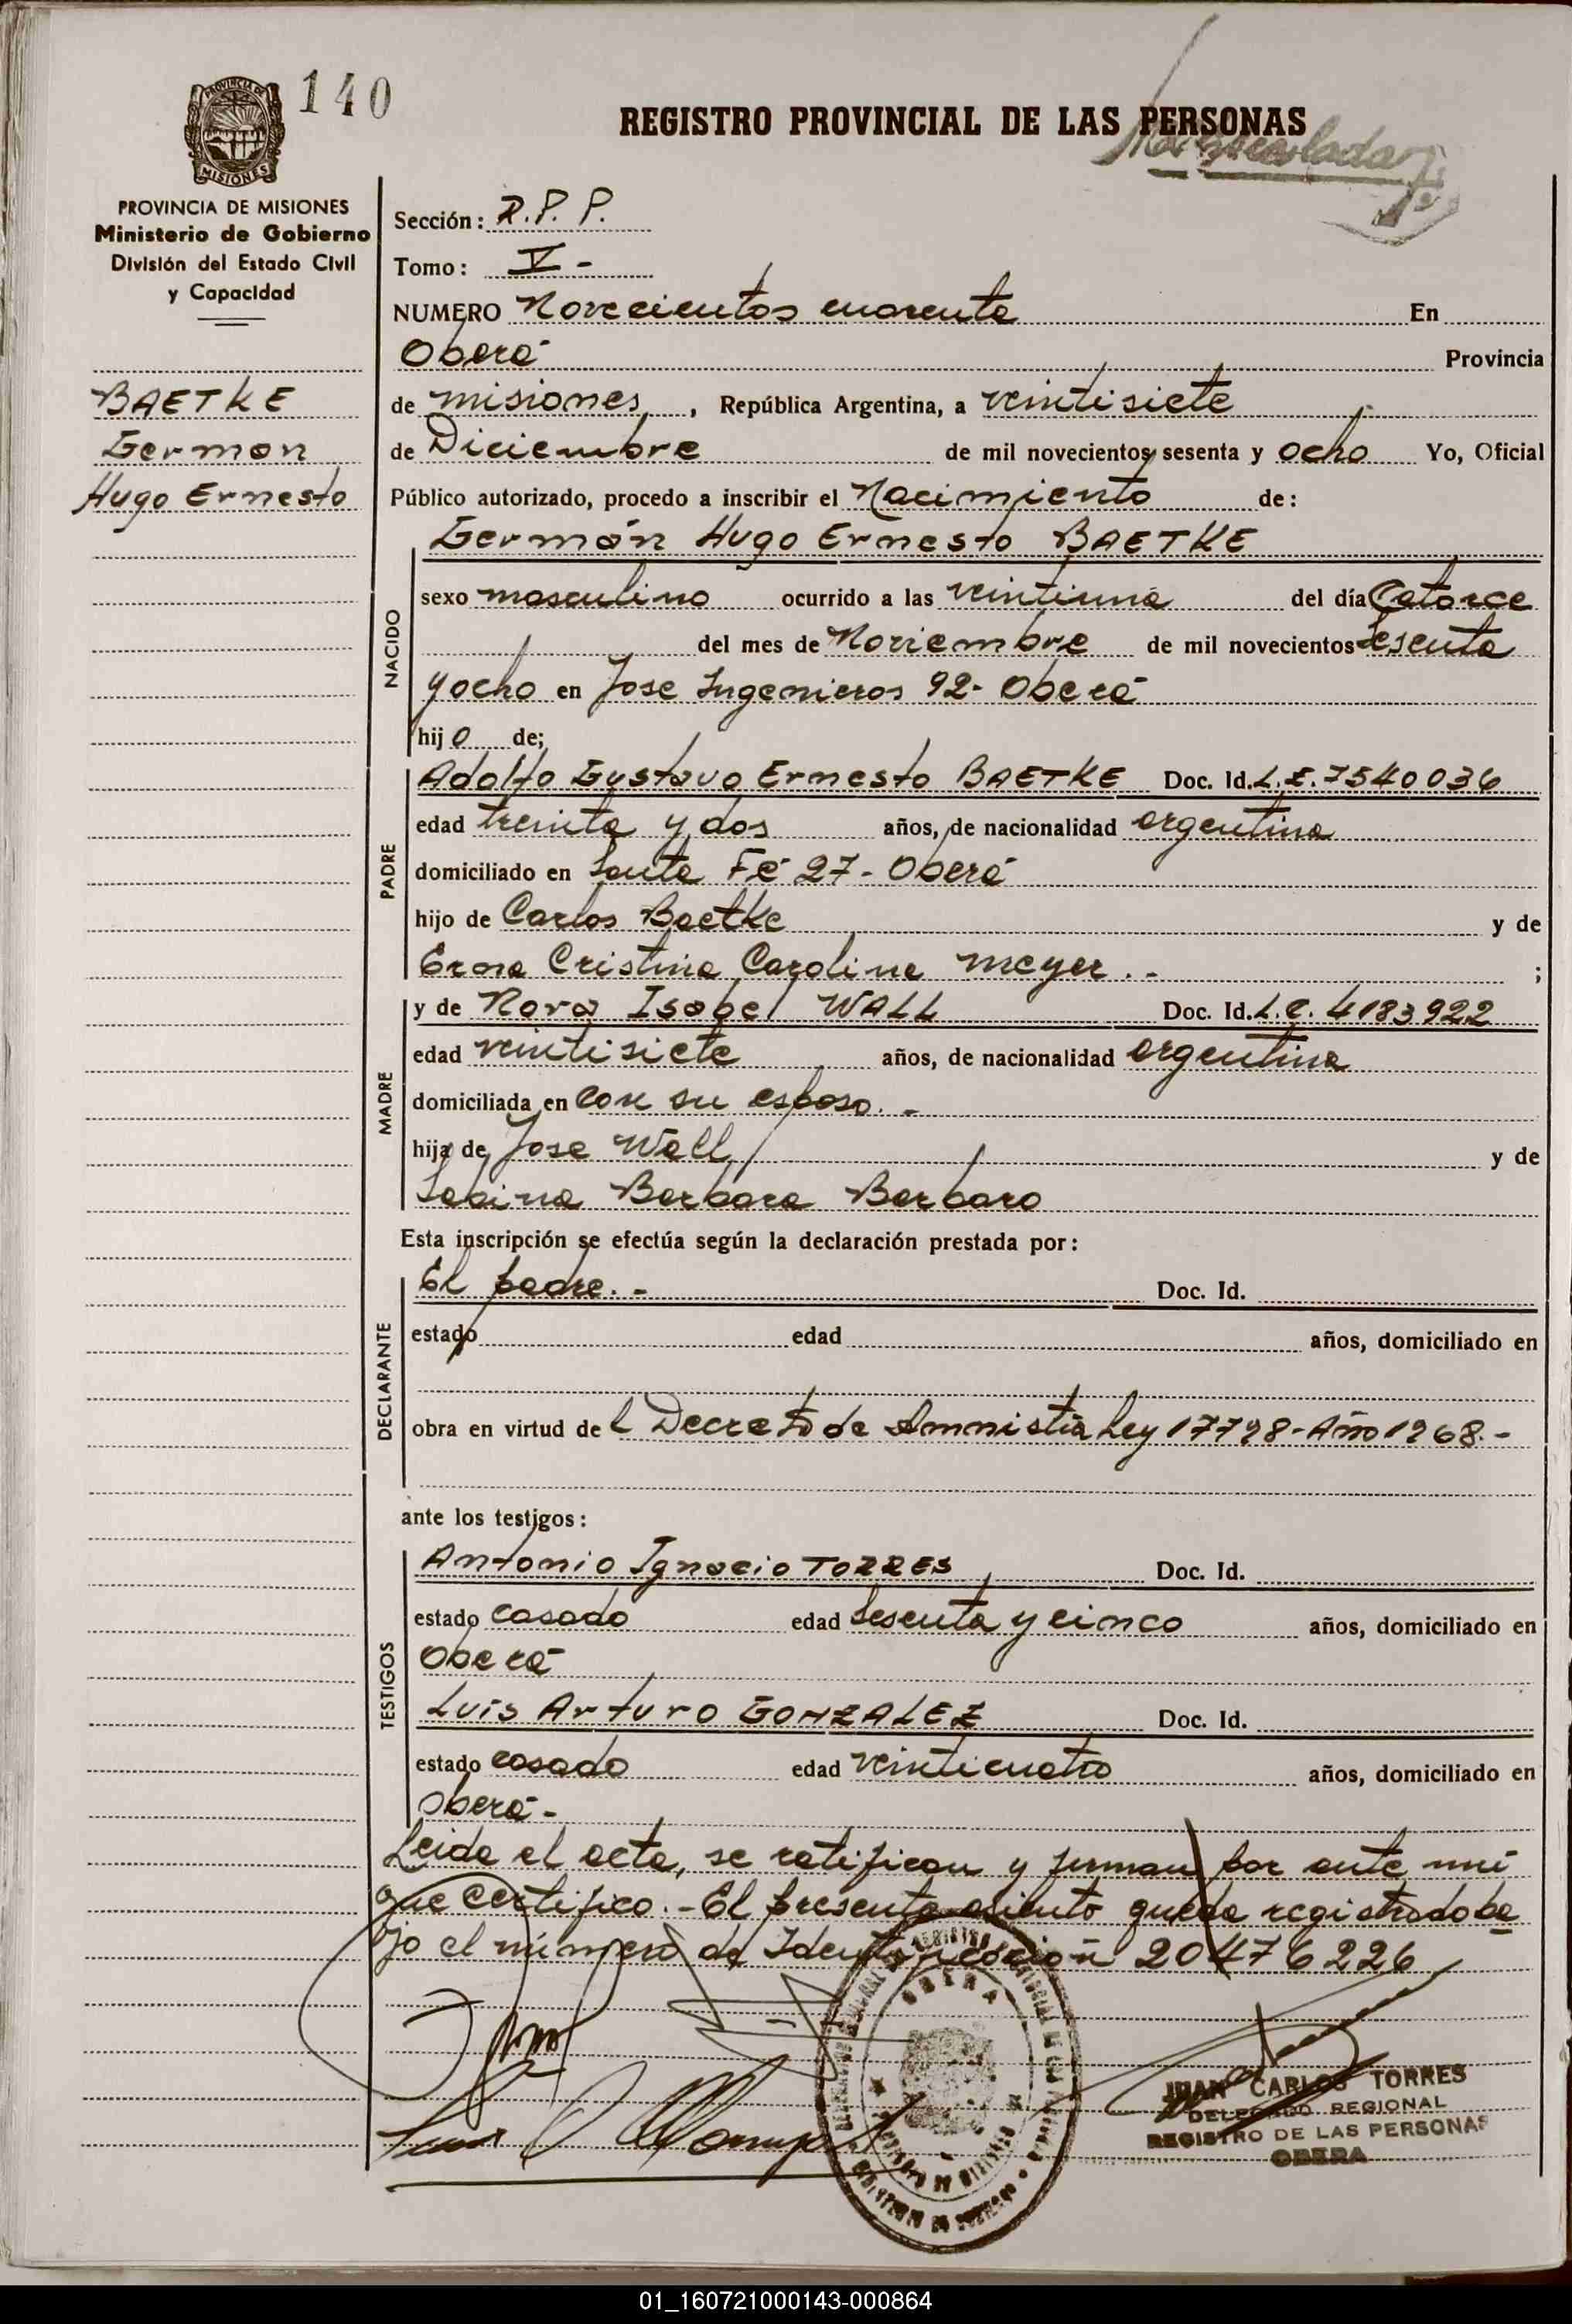 140
REGISTRO PROVINCIAL DE LAS PERSONAS
PROVINCIA DE MISIONES
Ministerio de Gobierno
División del Estado Civil
y Capacidad
BAETKE
German
Hugo Ernesto
Sección: R.P.P.
Tomo: V -
NUMERO Novecientos cuarenta En
Oberá Provincia
de misiones, República Argentina, a veintisiete
de Diciembre de mil novecientos sesenta y ocho Yo, Oficial
Público autorizado, procedo a inscribir el Nacimiento de:
NACIDO
Germán Hugo Ernesto BAETKE
sexo masculino ocurrido a las veintiuna del día Catorce
del mes de Noviembre de mil novecientos Sesenta
y ocho en Jose Ingenieros 92- Oberá
hijo de;
PADRE
Adolfo Gustavo Ernesto BAETKE Doc. Id. L.E. 7540036
edad treinta y dos años, de nacionalidad argentina
domiciliado en Santa Fé 27 - Oberá
hijo de Carlos Baetke y de
Erna Cristina Carolina Meyer. - ;
MADRE
y de Nora Isabel WALL Doc. Id. L.C. 4183922
edad veintisiete años, de nacionalidad argentina
domiciliada en con su esposo. -
hija de Jose Wall y de
Sabina Barbara Barbaro
Esta inscripción se efectúa según la declaración prestada por:
DECLARANTE
El padre. - Doc. Id.
estado edad años, domiciliado en
obra en virtud del Decreto de Amnistía Ley 17798- Año 1968. -
ante los testigos:
TESTIGOS
Antonio Ignacio TORRES Doc. Id.
estado casado edad sesenta y cinco años, domiciliado en
Oberá
Luis Arturo GONZALEZ Doc. Id.
estado casado edad veinticuatro años, domiciliado en
Oberá -
Leida el acta, se ratifican y firman por ante mí
que certifico. - El presente asiento queda registrado ba
jo el número de Identificación 20476226
OBERA
JUAN CARLOS TORRES
DELEGADO REGIONAL
REGISTRO DE LAS PERSONAS
OBERA
01_160721000143-000864